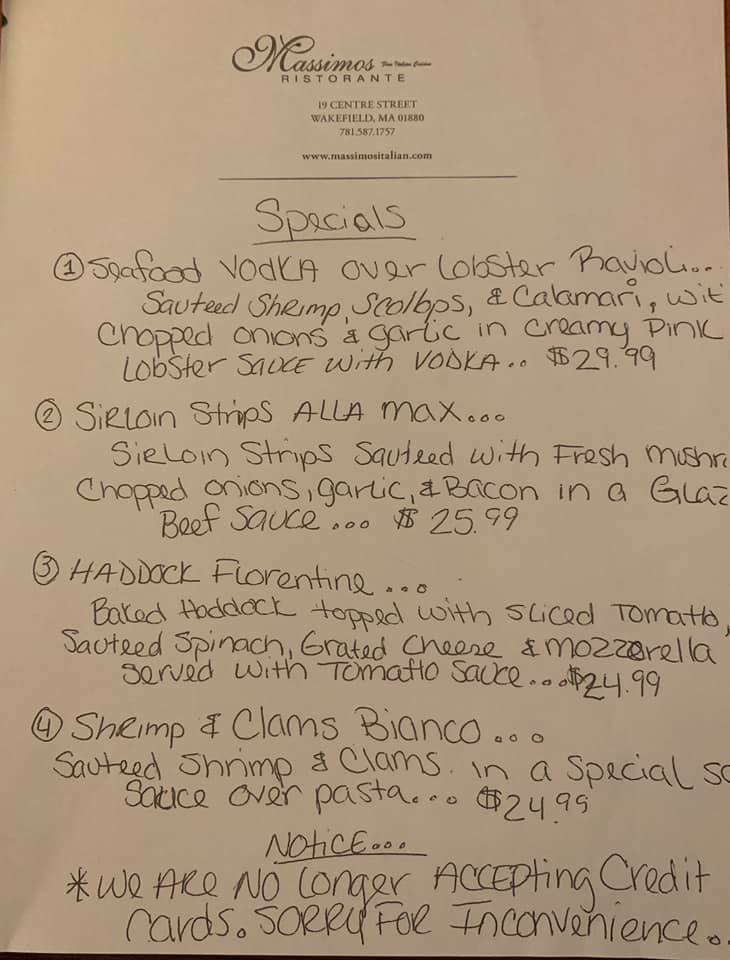 Massimos Fine Italian Cuisine
RISTORANTE
19 CENTRE STREET
WAKEFIELD, MA 01880
781.587.1757
www.massimositalian.com
Specials
① Seafood VODKA over Lobster Ravioli...
Sauteed Shrimp, Scolbps, & Calamari, wit
Chopped onions & garlic in creamy Pink
Lobster SAUCE with VODKA.. $29.99
② SirLoin Strips ALLA max...
SirLoin Strips Sauteed with Fresh mushr
Chopped onions, garlic, & Bacon in a Glaz
Beef Sauce... $25.99
③ HADDOCK Florentine...
Baked Haddock topped with sliced Tomatto,
Sauteed Spinach, Grated Cheese & mozzerella
served with Tomatto Sauce...$24.99
④ Shrimp & Clams Bianco...
Sauteed Shrimp & Clams. in a Special sc
Sauce over pasta... $24.99
Notice...
*We Are No Longer Accepting Credit
Cards. Sorry For Inconvenience..